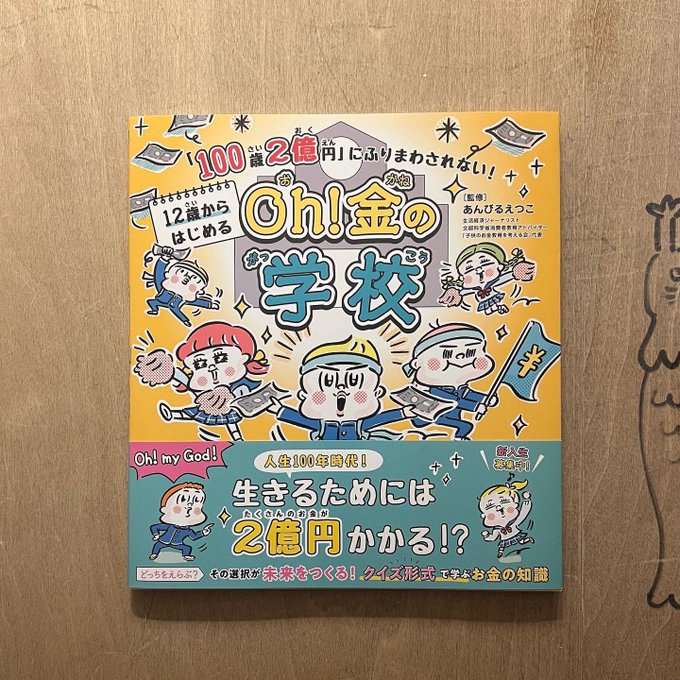 「100歳2億円」にふりまわされない!
さい おく えん
12歳から
さい
はじめる
Oh!金の
お かね
学校
がっ こう
[監修]
あんびるえつこ
生活経済ジャーナリスト
文部科学省消費者教育アドバイザー
「子供のお金教育を考える会」代表
¥
Oh! my God!
人生100年時代!
新入生
募集中!
生きるためには
たくさんのお金が
2億円かかる!?
どっちをえらぶ? その選択が未来をつくる! クイズ形式で学ぶお金の知識